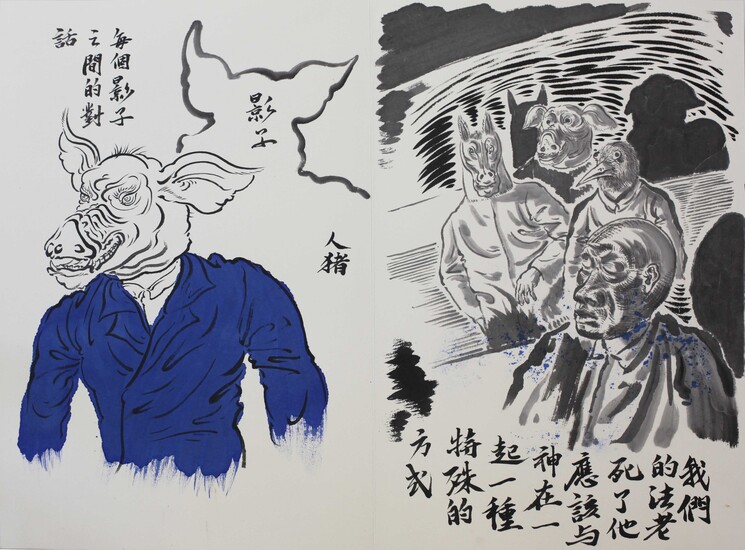 每個影子
之間的對
話
影子
人猪
我們
的法老
死了他
應該与
神在一
起一種
特殊的
方式